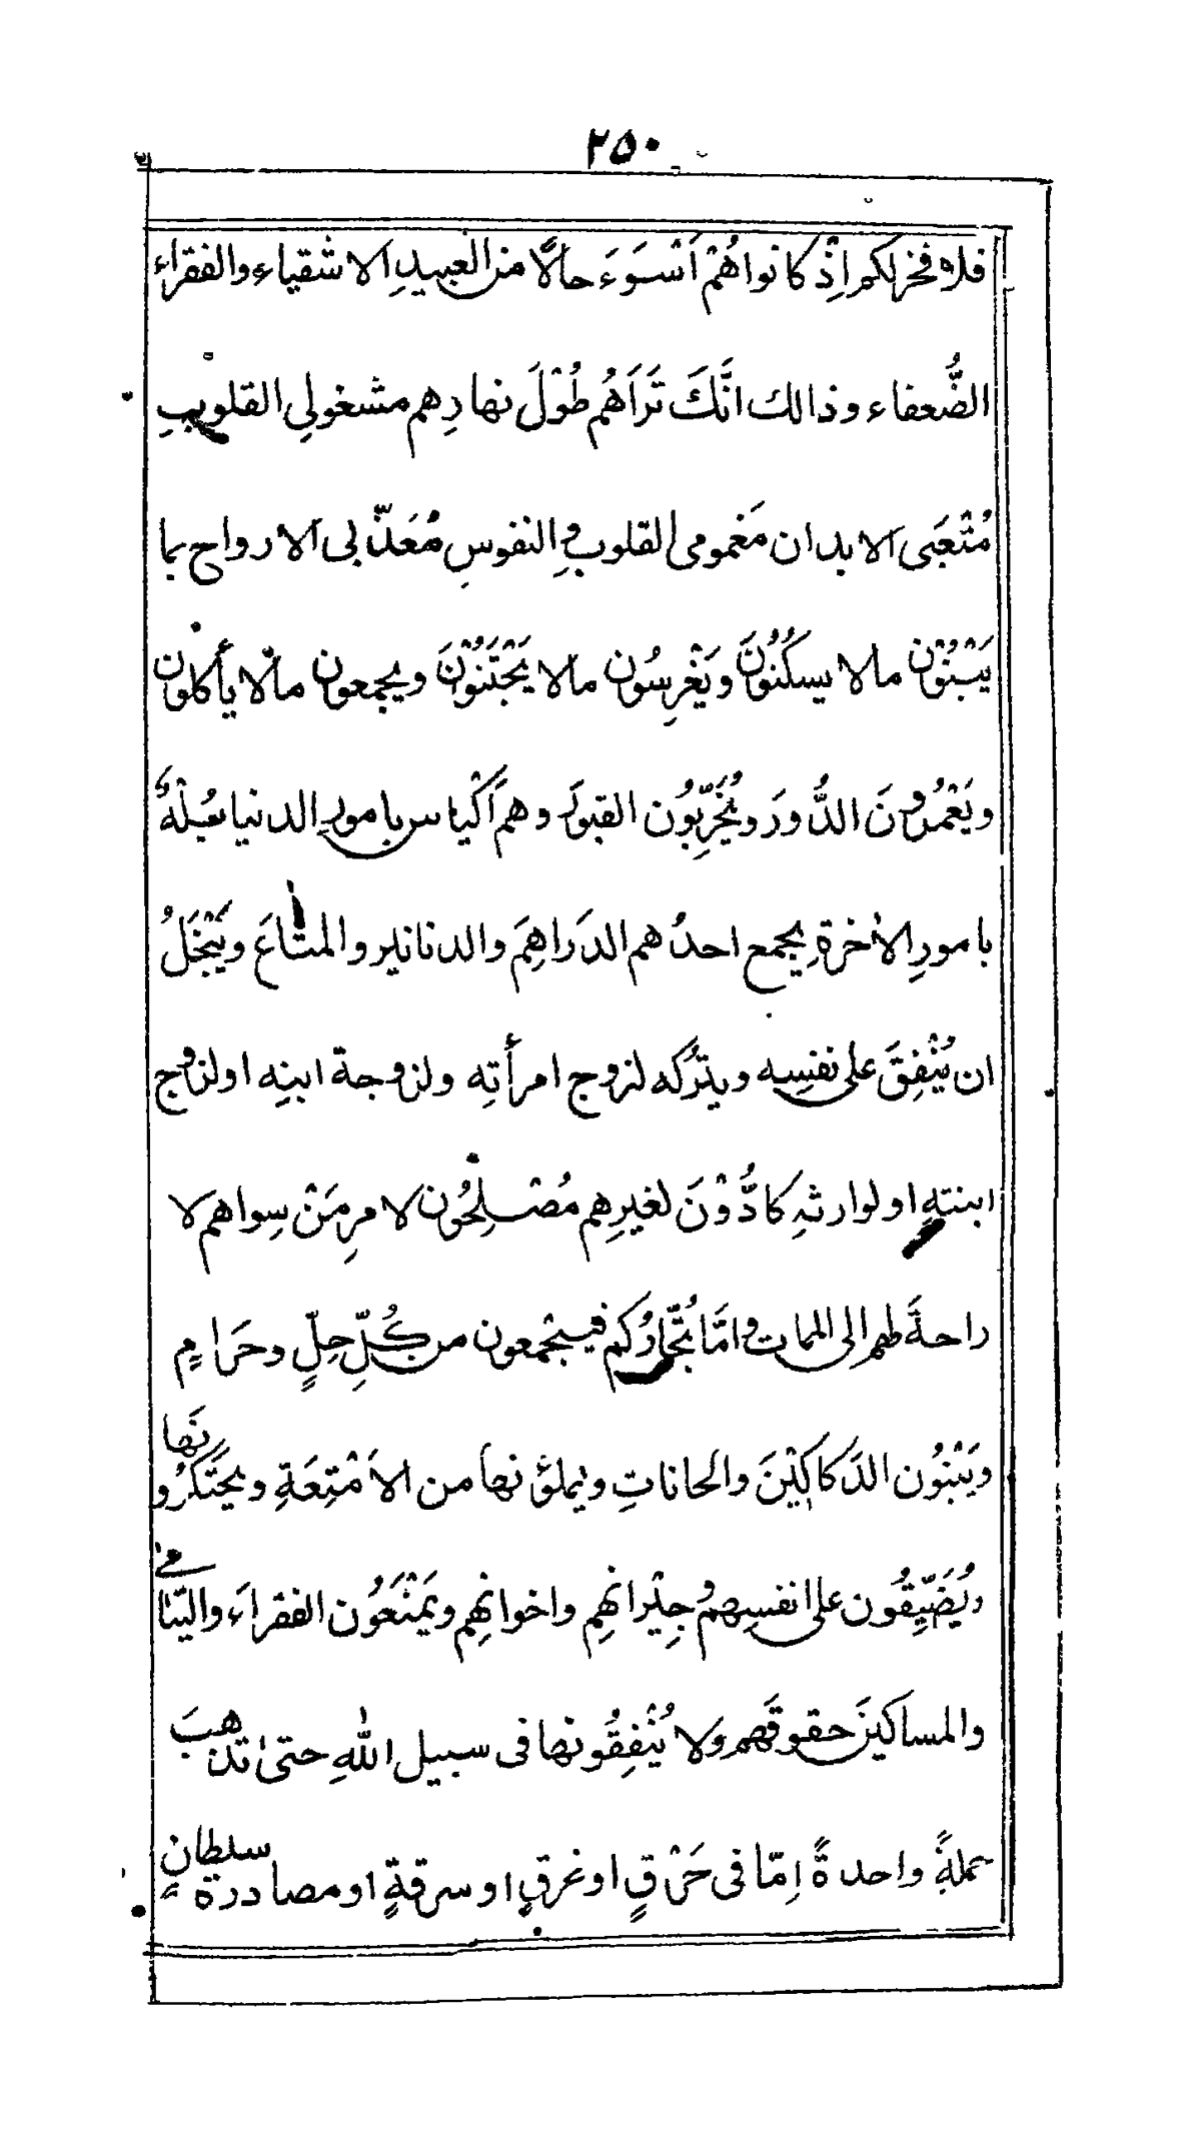 ٢٥٠
فلا فخر لكم اِذْ كانوا هُمْ اَسْوَءَ حالاً من العبيدِ الاشقياء والفقراء
الضُّعفاء وذالك انَّكَ تَرَاهُم طُوْلَ نهارِهم مشغولِي القلوبِ
مُتْعَبَى الابدان مَغمومى القلوبِ والنفوسِ مُعَذَّبى الارواح بما
يَبْنُوْن مالا يسكُنُوْنَ ويَغْرِسُون مالا يَجْتَنُوْنَ ويجمعون مالا يأكلون
ويَعْمُرُونَ الدُّورَ ويُخَرِّبُون القبورَ وهم اَكْياس بامورِ الدنيا بُلْهٌ
بامورِ الاٰخرةِ يجمع احدُهم الدَراهِمَ والدنانير والمتاعَ ويَبْخَلُ
ان يُنْفِقَ على نفسِه ويترُكه لزوج امرأتِه ولزوجة ابنِه اولزوج
ابنتهِ اولوارثهِ كادُّوْنَ لغيرِهم مُصْلِحُون لامرِ مَنْ سِواهم لا
راحةَ لهم الى الممات وامَّا تُجَّارُكم فيجْمعون من كُلِّ حِلٍّ وحَرَامٍ
ويَبْنُون الدَكاكِيْنَ والحاناتِ ويملؤنها من الاَمْتِعَةِ ويحتَكرُونَها
ويُضَيِّقُون على انفسِهم وجِيْرانِهِم واخوانِهِم ويَمْنَعُون الفقراءَ واليتامٰى
والمساكينَ حقوقَهم ولا يُنْفِقُونها فى سبيل اللّٰهِ حتىٰ تذهبَ
جملةً واحدةً اِمّا فى حَرْقٍ اوغرقٍ او سرقةٍ او مصادرة سلطانٍ